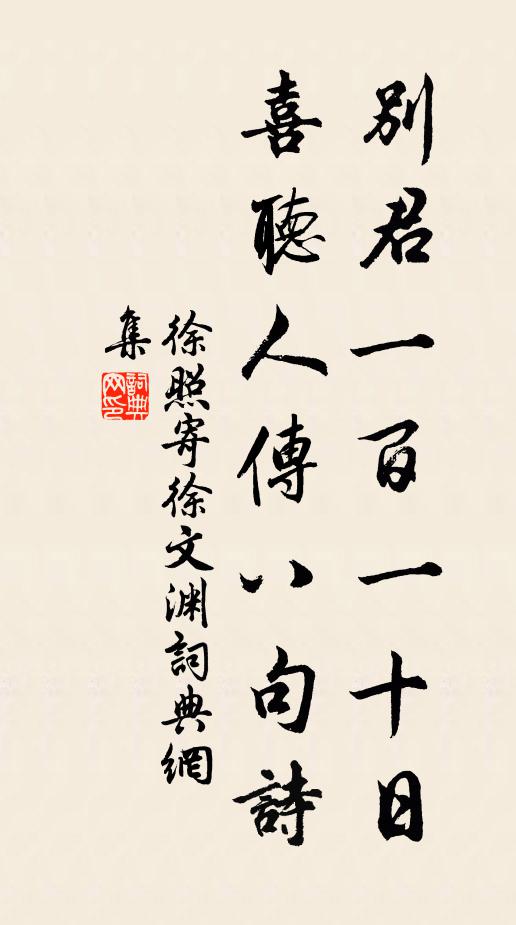 別君一百一十日
喜聽人傳八句詩
徐照寄徐文淵詞典網
集
詞典
网印